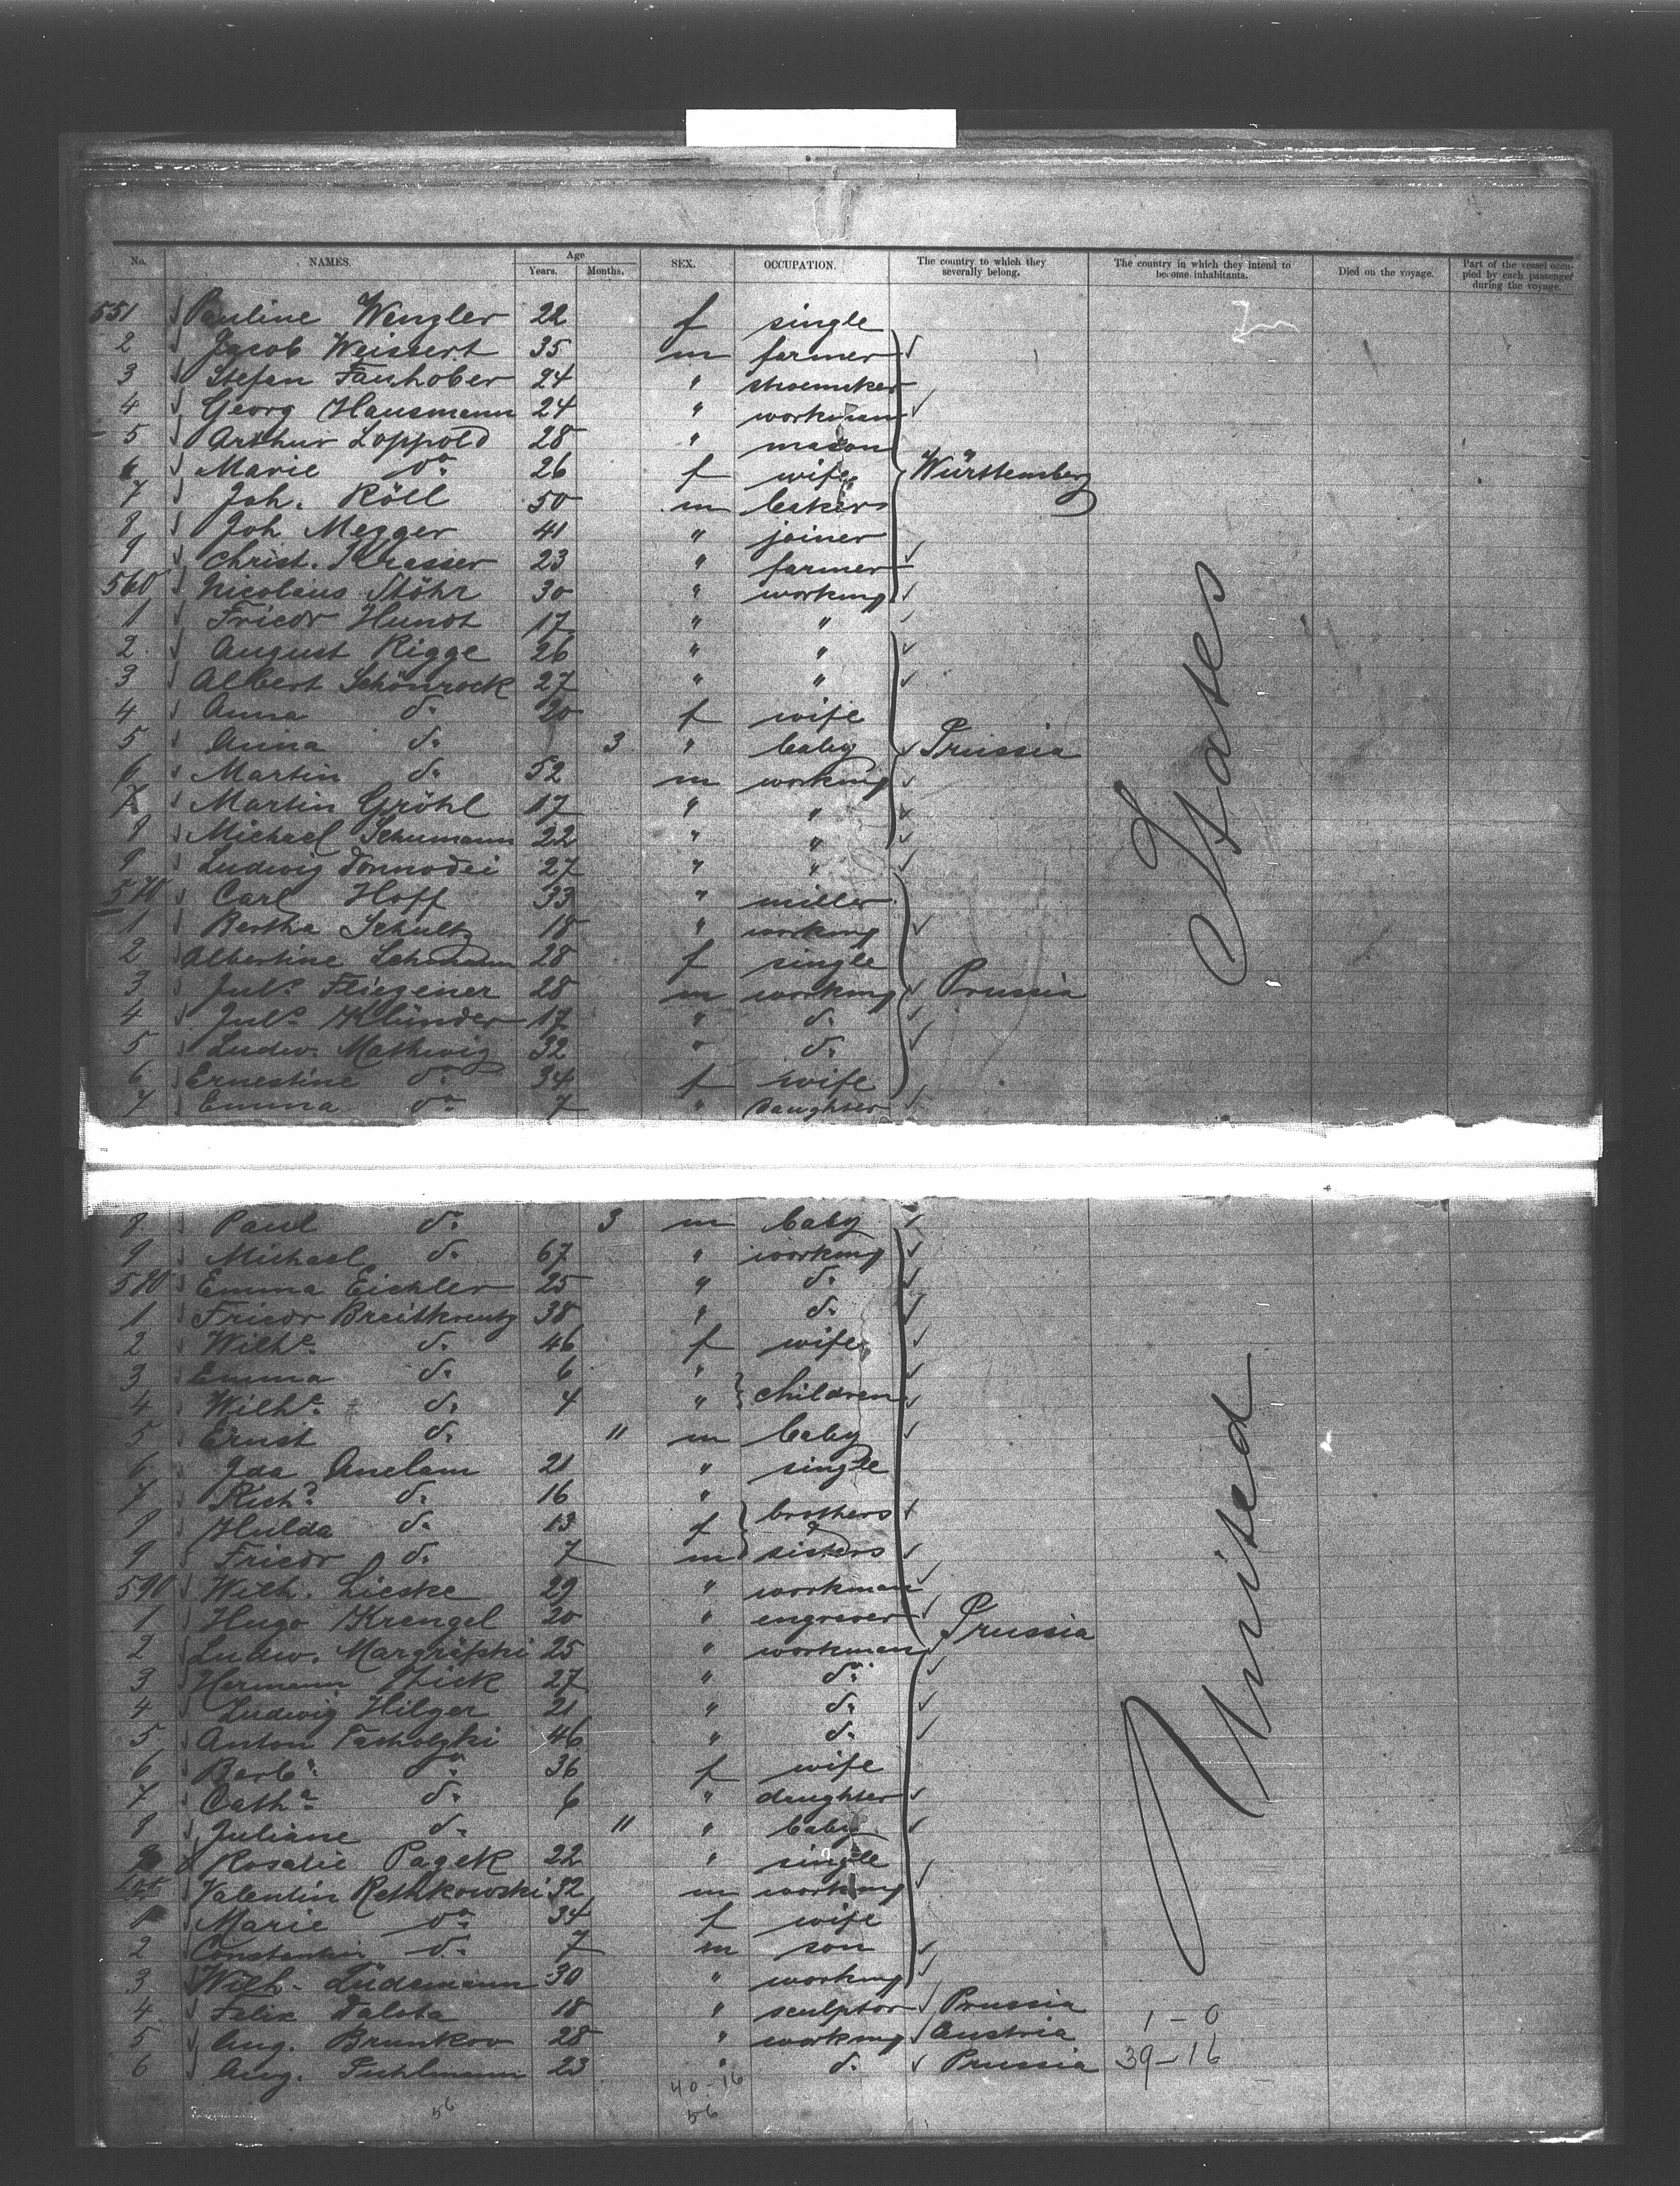 No. NAMES. Age Years. Months. SEX. OCCUPATION. The country to which they severally belong. The country in which they intend to become inhabitants. Died on the voyage. Part of the vessel occupied by each passenger during the voyage.
551 Pauline Wengler 22 f single
2 Jacob Weissert 35 m farmer
3 Stefan Fauhober 24 " shoemaker
4 Georg Hausmann 24 " workman
5 Arthur Loppold 28 " mason
6 Marie do 26 f wife Württemberg
7 Joh. Röll 50 m baker
8 Joh Mezger 41 " joiner
9 Christ. Strasser 23 " farmer
560 Nicolaus Stöhr 30 " working
1 Friedr Hundt 17 " "
2 August Rigge 26 " "
3 Albert Schönrock 27 " "
4 Anna d. 20 f wife
5 Anna d. 3 " baby Prussia
6 Martin d. 52 m working
7 Martin Gröhl 17 " "
8 Michael Schumann 22 " "
9 Ludwig Donnodei 27 " "
570 Carl Hoff 33 " miller
1 Bertha Schultz 18 " working
2 Albertine Lehmann 28 f single
3 Juls. Fliegener 28 m working Prussia
4 Juls. Klünder 17 " d.
5 Ludw. Mathwig 32 " d.
6 Ernestine do 34 f wife
7 Emma do 7 " daughter
8 Paul d. 3 m baby
9 Michael d. 67 " working
580 Emma Eichler 25 " d.
1 Friedr Breitkreutz 38 " d.
2 Wilhe d. 46 f wife
3 Emma d. 6 "
4 Wilhe d. 4 " children
5 Ernst d. 11 m baby
6 Ida Anclam 21 " single
7 Richd. d. 16 "
8 Hulda d. 13 f brothers
9 Friedr d. 7 m sisters
590 Wilh. Lieske 29 " workman
1 Hugo Krengel 20 " engraver Prussia
2 Ludw. Margrifski 25 " workman
3 Hermann Zick 27 " d.
4 Ludwig Hilger 21 " d.
5 Anton Tacholzki 46 " d.
6 Barba. d. 36 f wife
7 Catha d. 6 " daughter
8 Juliane d. 11 " baby
9 Rosalie Pagek 22 " single
Valentin Rethkowski 32 m working
1 Marie do 34 f wife
2 Constantin d. 7 m son
3 Wilh. Lüdemann 30 " working
4 Felix Dalota 18 " sculptor Prussia 1-0
5 Aug. Brunkow 28 " working Austria
6 Aug. Fuhlmann 23 " d. Prussia 39-16
40-16
56 56
United States